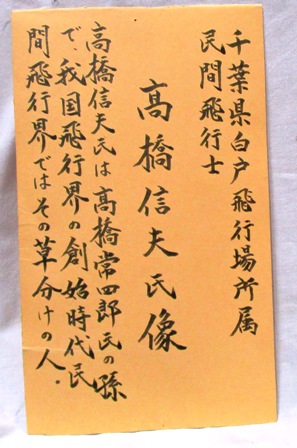 千葉県白戸飛行場所属
民間飛行士
高橋信夫氏像
高橋信夫氏は高橋常四郎氏の孫
で、我国飛行界の創始時代民
間飛行界ではその草分けの人。